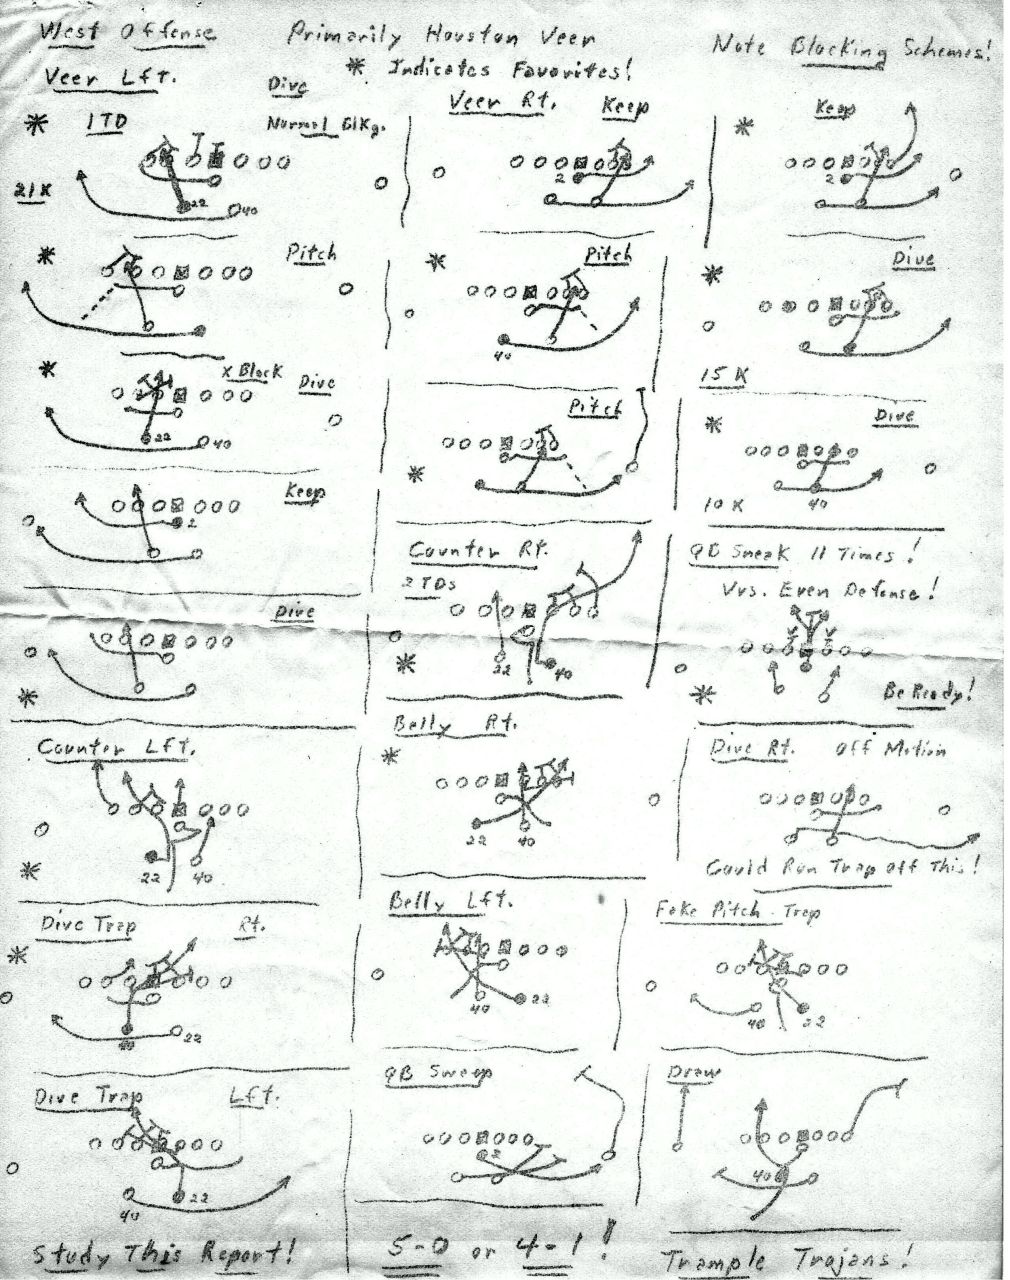 West Offense Primarily Houston Veer Note Blocking Schemes!
* Indicates Favorites!
Veer Lft.
Dive
* 1TD Normal Blkg.
21K
22
40
* Pitch
* X Block Dive
22 40
Keep
2
Dive
*
Counter Lft.
*
22 40
Dive Trap Rt.
*
22
Dive Trap Lft.
22
40
Veer Rt. Keep
2
* Pitch
40
Pitch
*
Counter Rt.
2 TDs
* 22 40
Belly Rt.
*
22 40
Belly Lft.
22
40
QB Sweep
2
* Keep
2
* Dive
15 K
* Dive
10 K 40
QB Sneak 11 Times!
Vrs. Even Defense!
* Be Ready!
Dive Rt. Off Motion
Could Run Trap off This!
Fake Pitch - Trap
40 22
Draw
40
Study This Report! 5-0 or 4-1! Trample Trojans!